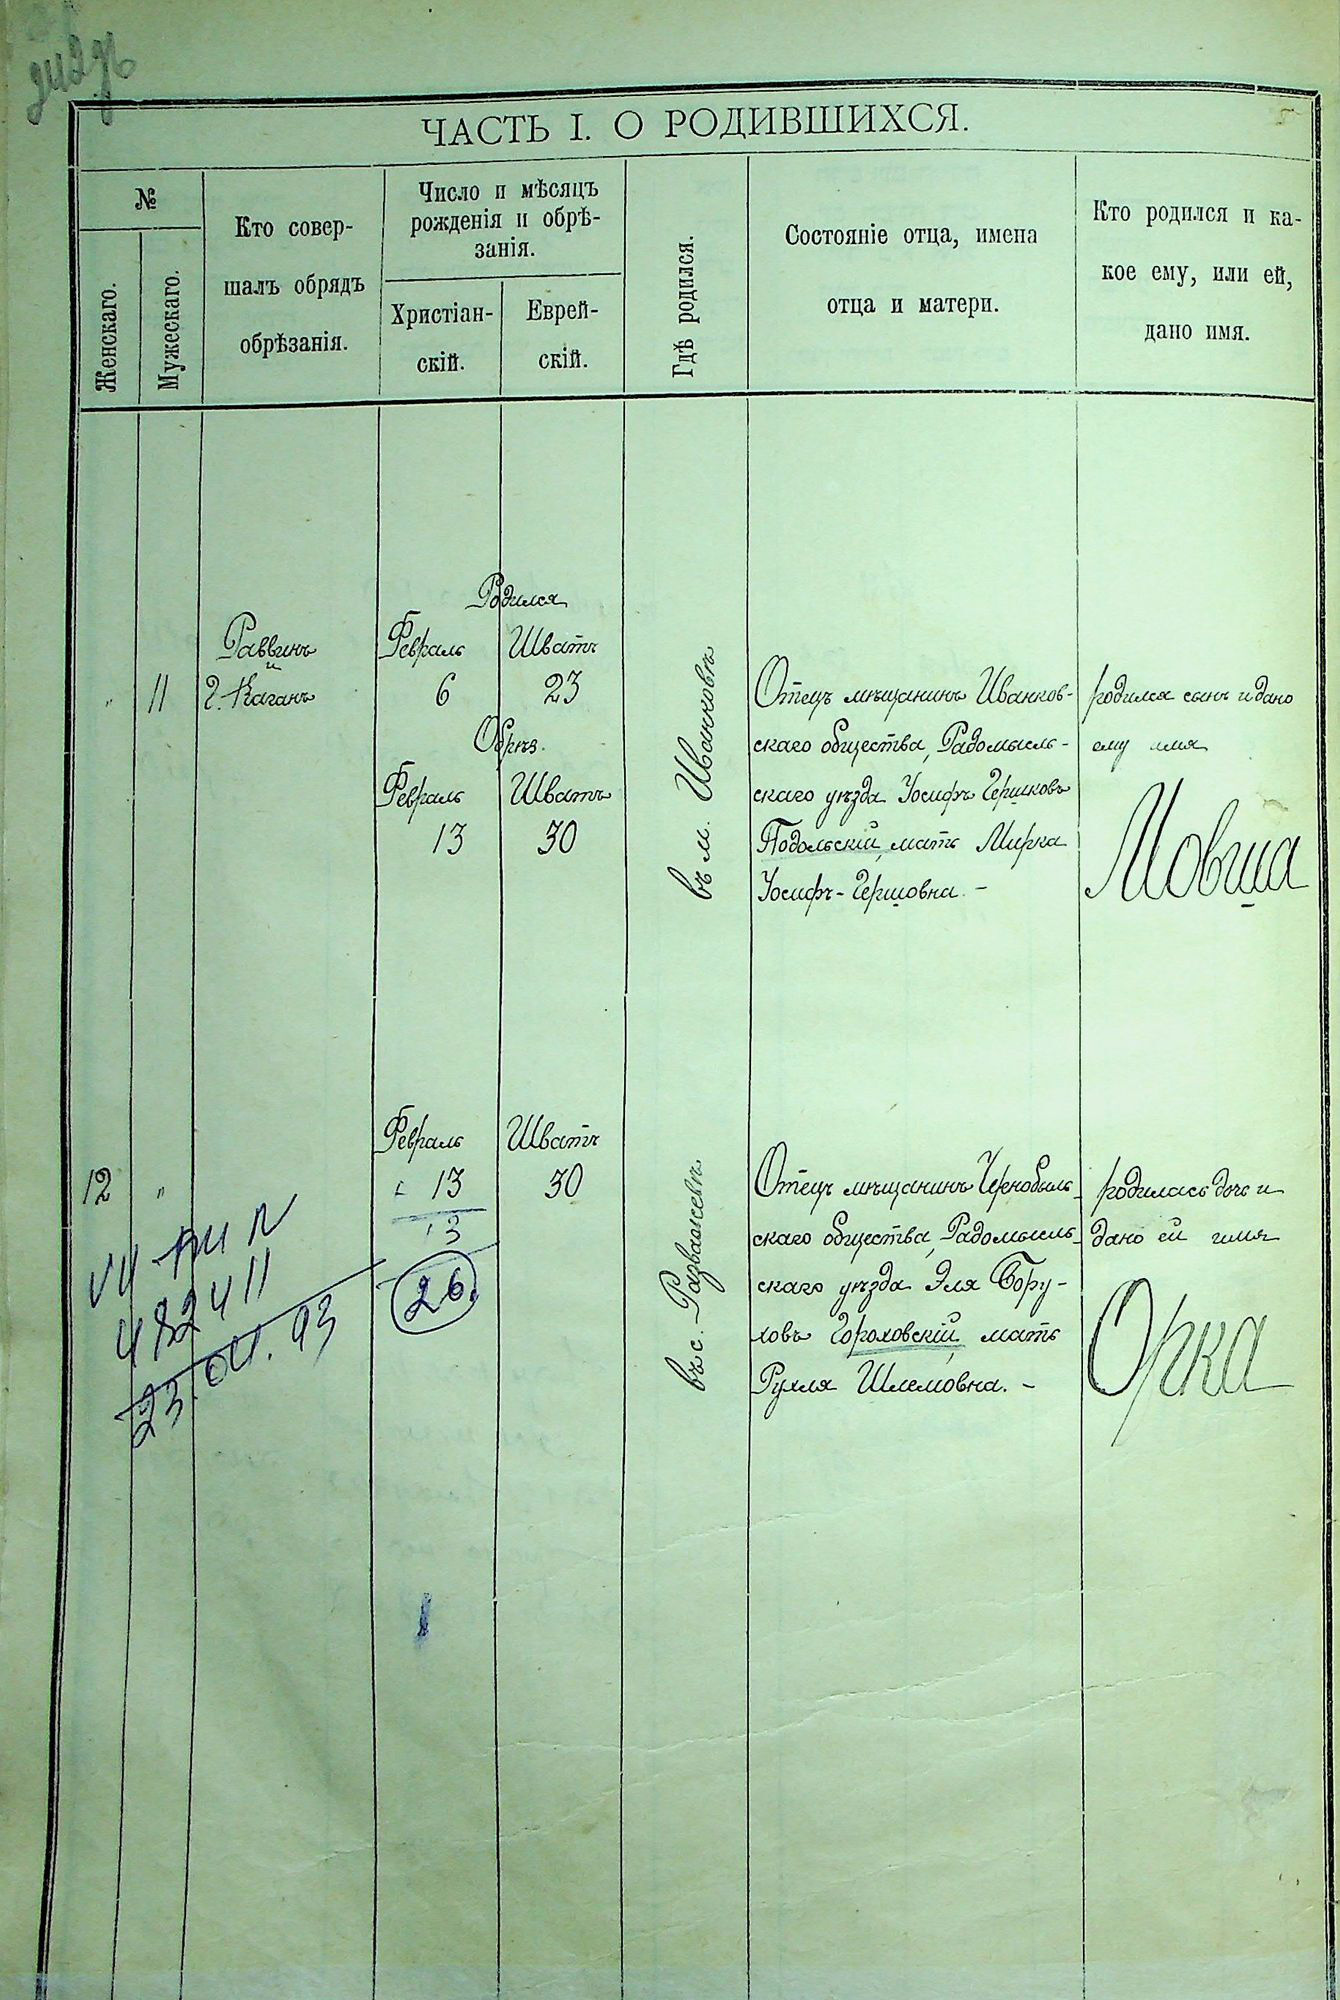 ЧАСТЬ I. О РОДИВШИХСЯ.
№
Женскаго.
Мужескаго.
Кто совер-
шалъ обрядъ
обрѣзанія.
Число и мѣсяцъ
рожденія и обрѣ-
занія.
Христіан-
скій.
Еврей-
скій.
Гдѣ родился.
Состояніе отца, имена
отца и матери.
Кто родился и ка-
кое ему, или ей,
дано имя.
"
11
Раввинъ
и
Г. Каганъ
Родился
Февраль Шватъ
6 23
Обрѣз.
Февраль Шватъ
13 30
въ м. Иванковѣ
Отецъ мѣщанинъ Иванков-
скаго общества, Радомысль-
скаго уѣзда Іосифъ Гершковъ
Подольскій, мать Мирка
Іосифъ-Гершовна. –
родился сынъ и дано
ему имя
Мовша
12
"
Февраль Шватъ
13 30
13
26.
въ с. Разважевѣ
Отецъ мѣщанинъ Чернобыль-
скаго общества, Радомысль-
скаго уѣзда Эля Бору-
ховъ Гороховскій, мать
Рухля Шлемовна. –
родилась дочь и
дано ей имя
Орка
482411
23.04.93